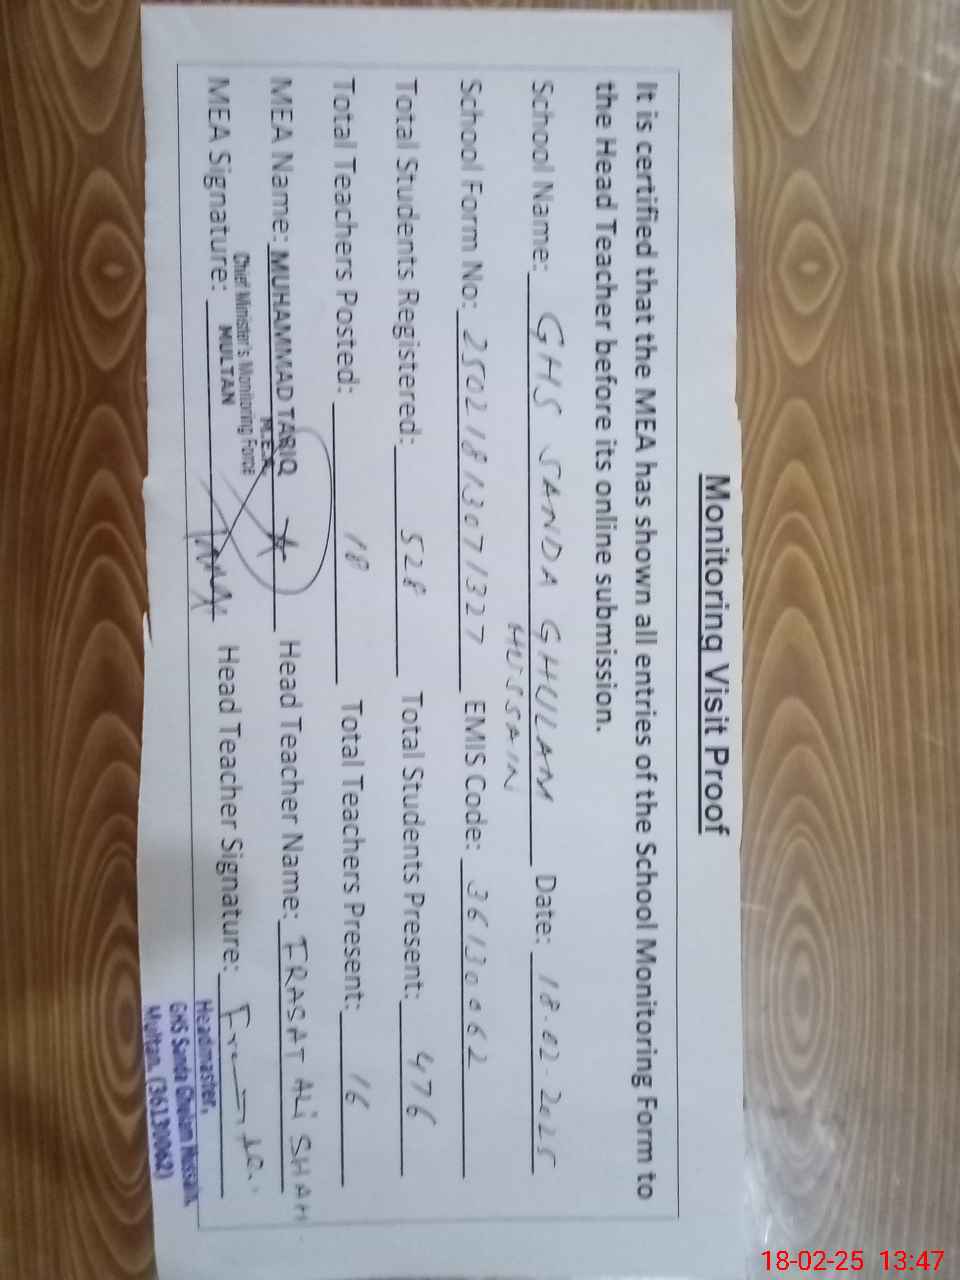 Monitoring Visit Proof
It is certified that the MEA has shown all entries of the School Monitoring Form to
the Head Teacher before its online submission.
School Name: GHS SANDA GHULAM HUSSAIN Date: 18-02-2025
School Form No: 25021813071327 EMIS Code: 36130062
Total Students Registered: 528 Total Students Present: 476
Total Teachers Posted: 18 Total Teachers Present: 16
MEA Name: MUHAMMAD TARIQ Head Teacher Name: FRASAT ALI SHAH
M.E.A
Chief Minister's Monitoring Force
MULTAN
MEA Signature: Head Teacher Signature:
Headmaster,
GHS Sanda Ghulam Hussain,
Multan. (36130062)
18-02-25 13:47